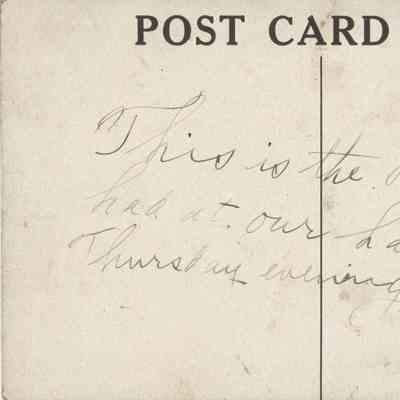 POST CARD
This is the
had at our
Thursday evening